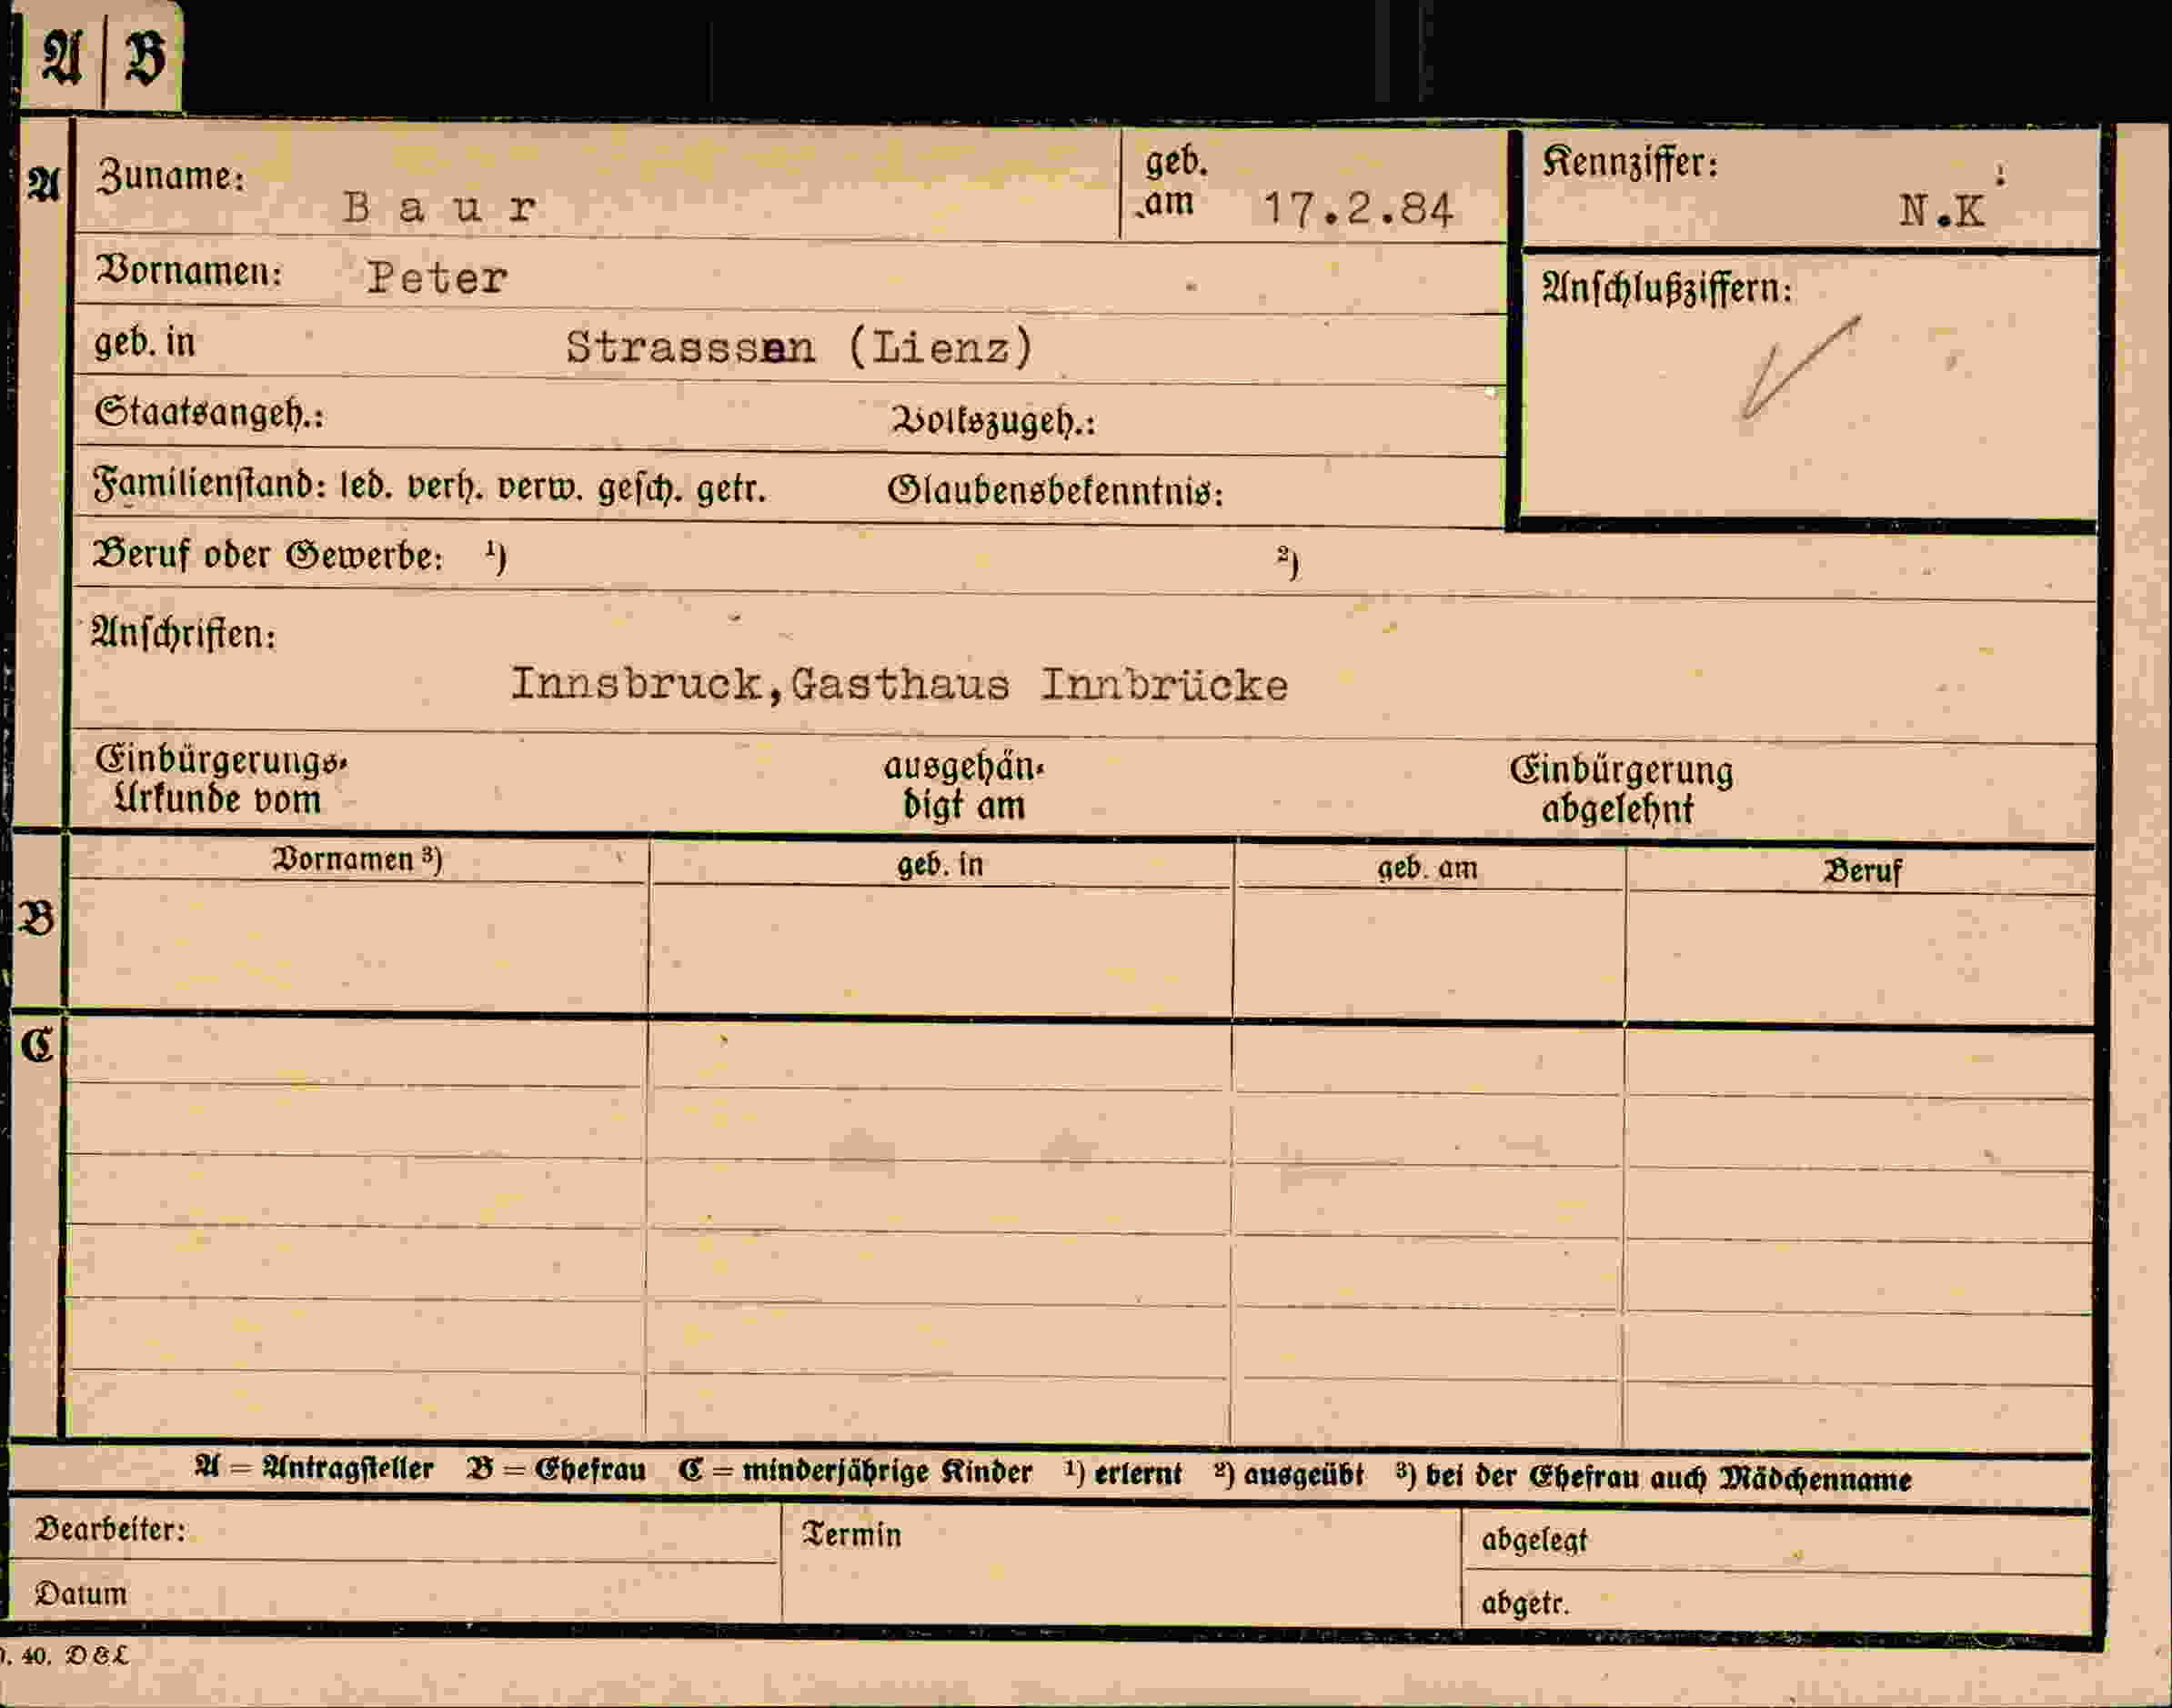 A | B
A
Zuname: Baur
geb. am 17.2.84
Kennziffer: N.K
Vornamen: Peter
Anschlußziffern:
geb. in Strasssen (Lienz)
Staatsangeh.: Volkszugeh.:
Familienstand: led. verh. verw. gesch. getr. Glaubensbekenntnis:
Beruf oder Gewerbe: ¹) ²)
Anschriften:
Innsbruck, Gasthaus Innbrücke
Einbürgerungs-
Urkunde vom
ausgehän-
digt am
Einbürgerung
abgelehnt
Vornamen ³) geb. in geb. am Beruf
B
C
A = Antragsteller B = Ehefrau C = minderjährige Kinder ¹) erlernt ²) ausgeübt ³) bei der Ehefrau auch Mädchenname
Bearbeiter: Termin abgelegt
Datum abgetr.
40. D&L